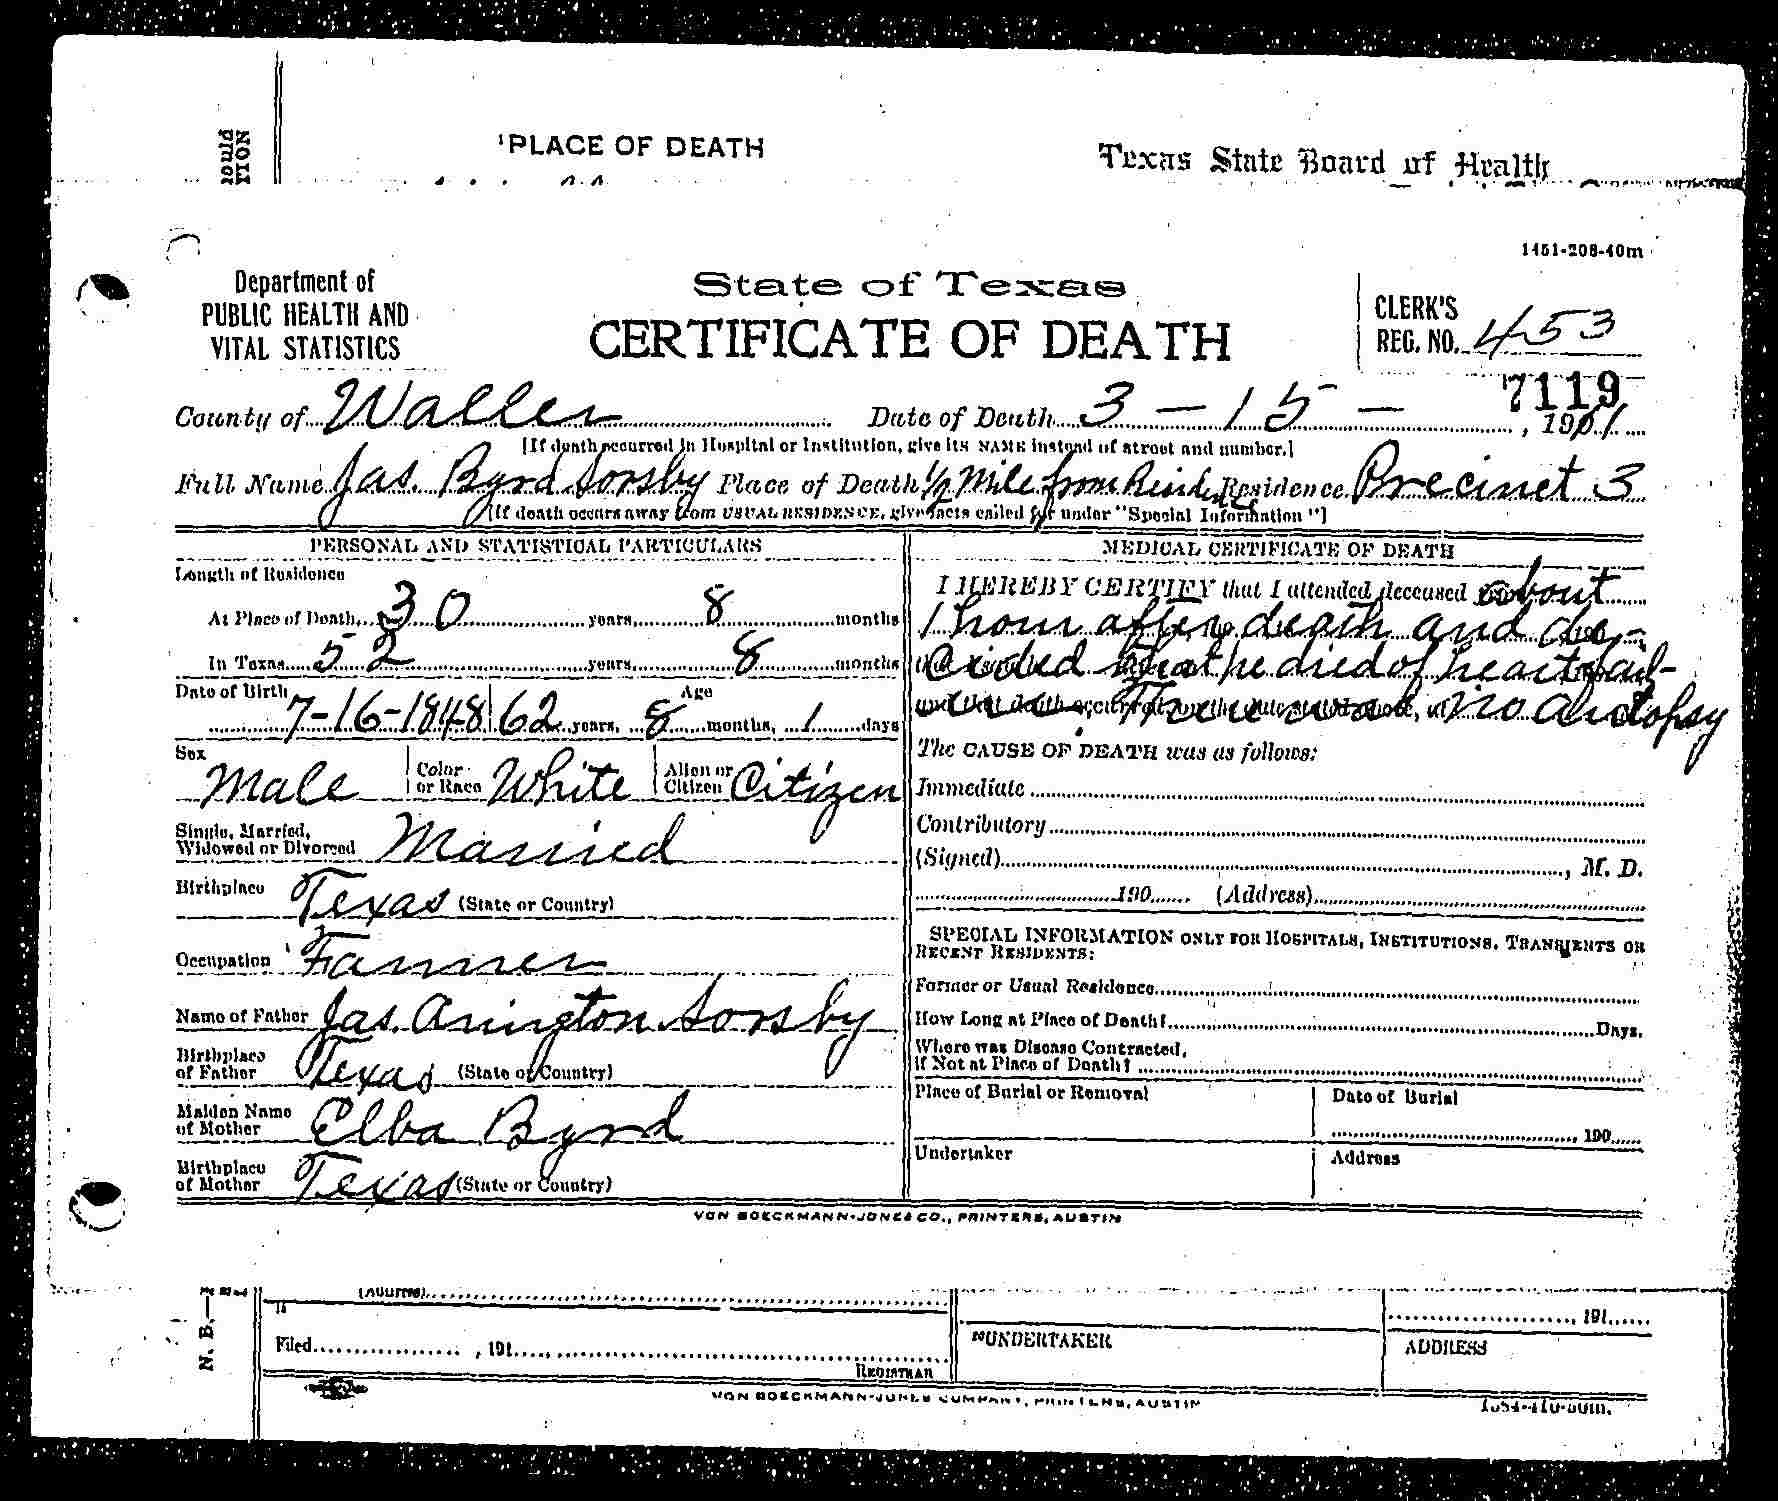 ould
TION
¹PLACE OF DEATH
Texas State Board of Health
1451-208-40m
Department of
PUBLIC HEALTH AND
VITAL STATISTICS
State of Texas
CERTIFICATE OF DEATH
CLERK'S
REG. NO. 453
7119
County of Waller Date of Death 3-15- , 1911
[If death occurred in Hospital or Institution, give its NAME instead of street and number.]
Full Name Jas. Byrd Sorsby Place of Death 1/2 Mile from Residence Residence Precinct 3
[If death occurs away from USUAL RESIDENCE, give facts called for under "Special Information"]
PERSONAL AND STATISTICAL PARTICULARS
Length of Residence
At Place of Death 30 years 8 months
In Texas 52 years 8 months
Date of Birth Age
7-16-1848 62 years, 8 months, 1 days
Sex Male Color or Race White Alien or Citizen Citizen
Single, Married,
Widowed or Divorced Married
Birthplace Texas (State or Country)
Occupation Farmer
Name of Father Jas. Arington Sorsby
Birthplace
of Father Texas (State or Country)
Maiden Name
of Mother Elba Byrd
Birthplace
of Mother Texas (State or Country)
MEDICAL CERTIFICATE OF DEATH
I HEREBY CERTIFY that I attended deceased about
1 hour after death and de-
cided that he died of heart fail-
ure. There was no autopsy
The CAUSE OF DEATH was as follows:
Immediate
Contributory
(Signed) , M. D.
190 (Address)
SPECIAL INFORMATION ONLY FOR HOSPITALS, INSTITUTIONS, TRANSIENTS OR
RECENT RESIDENTS:
Former or Usual Residence
How Long at Place of Death? Days.
Where was Disease Contracted,
If Not at Place of Death?
Place of Burial or Removal Date of Burial
190
Undertaker Address
VON BOECKMANN-JONES CO., PRINTERS, AUSTIN
N. B.—
(Address)
191
Filed , 191
REGISTRAR
²⁰UNDERTAKER
ADDRESS
VON BOECKMANN-JONES COMPANY, PRINTERS, AUSTIN